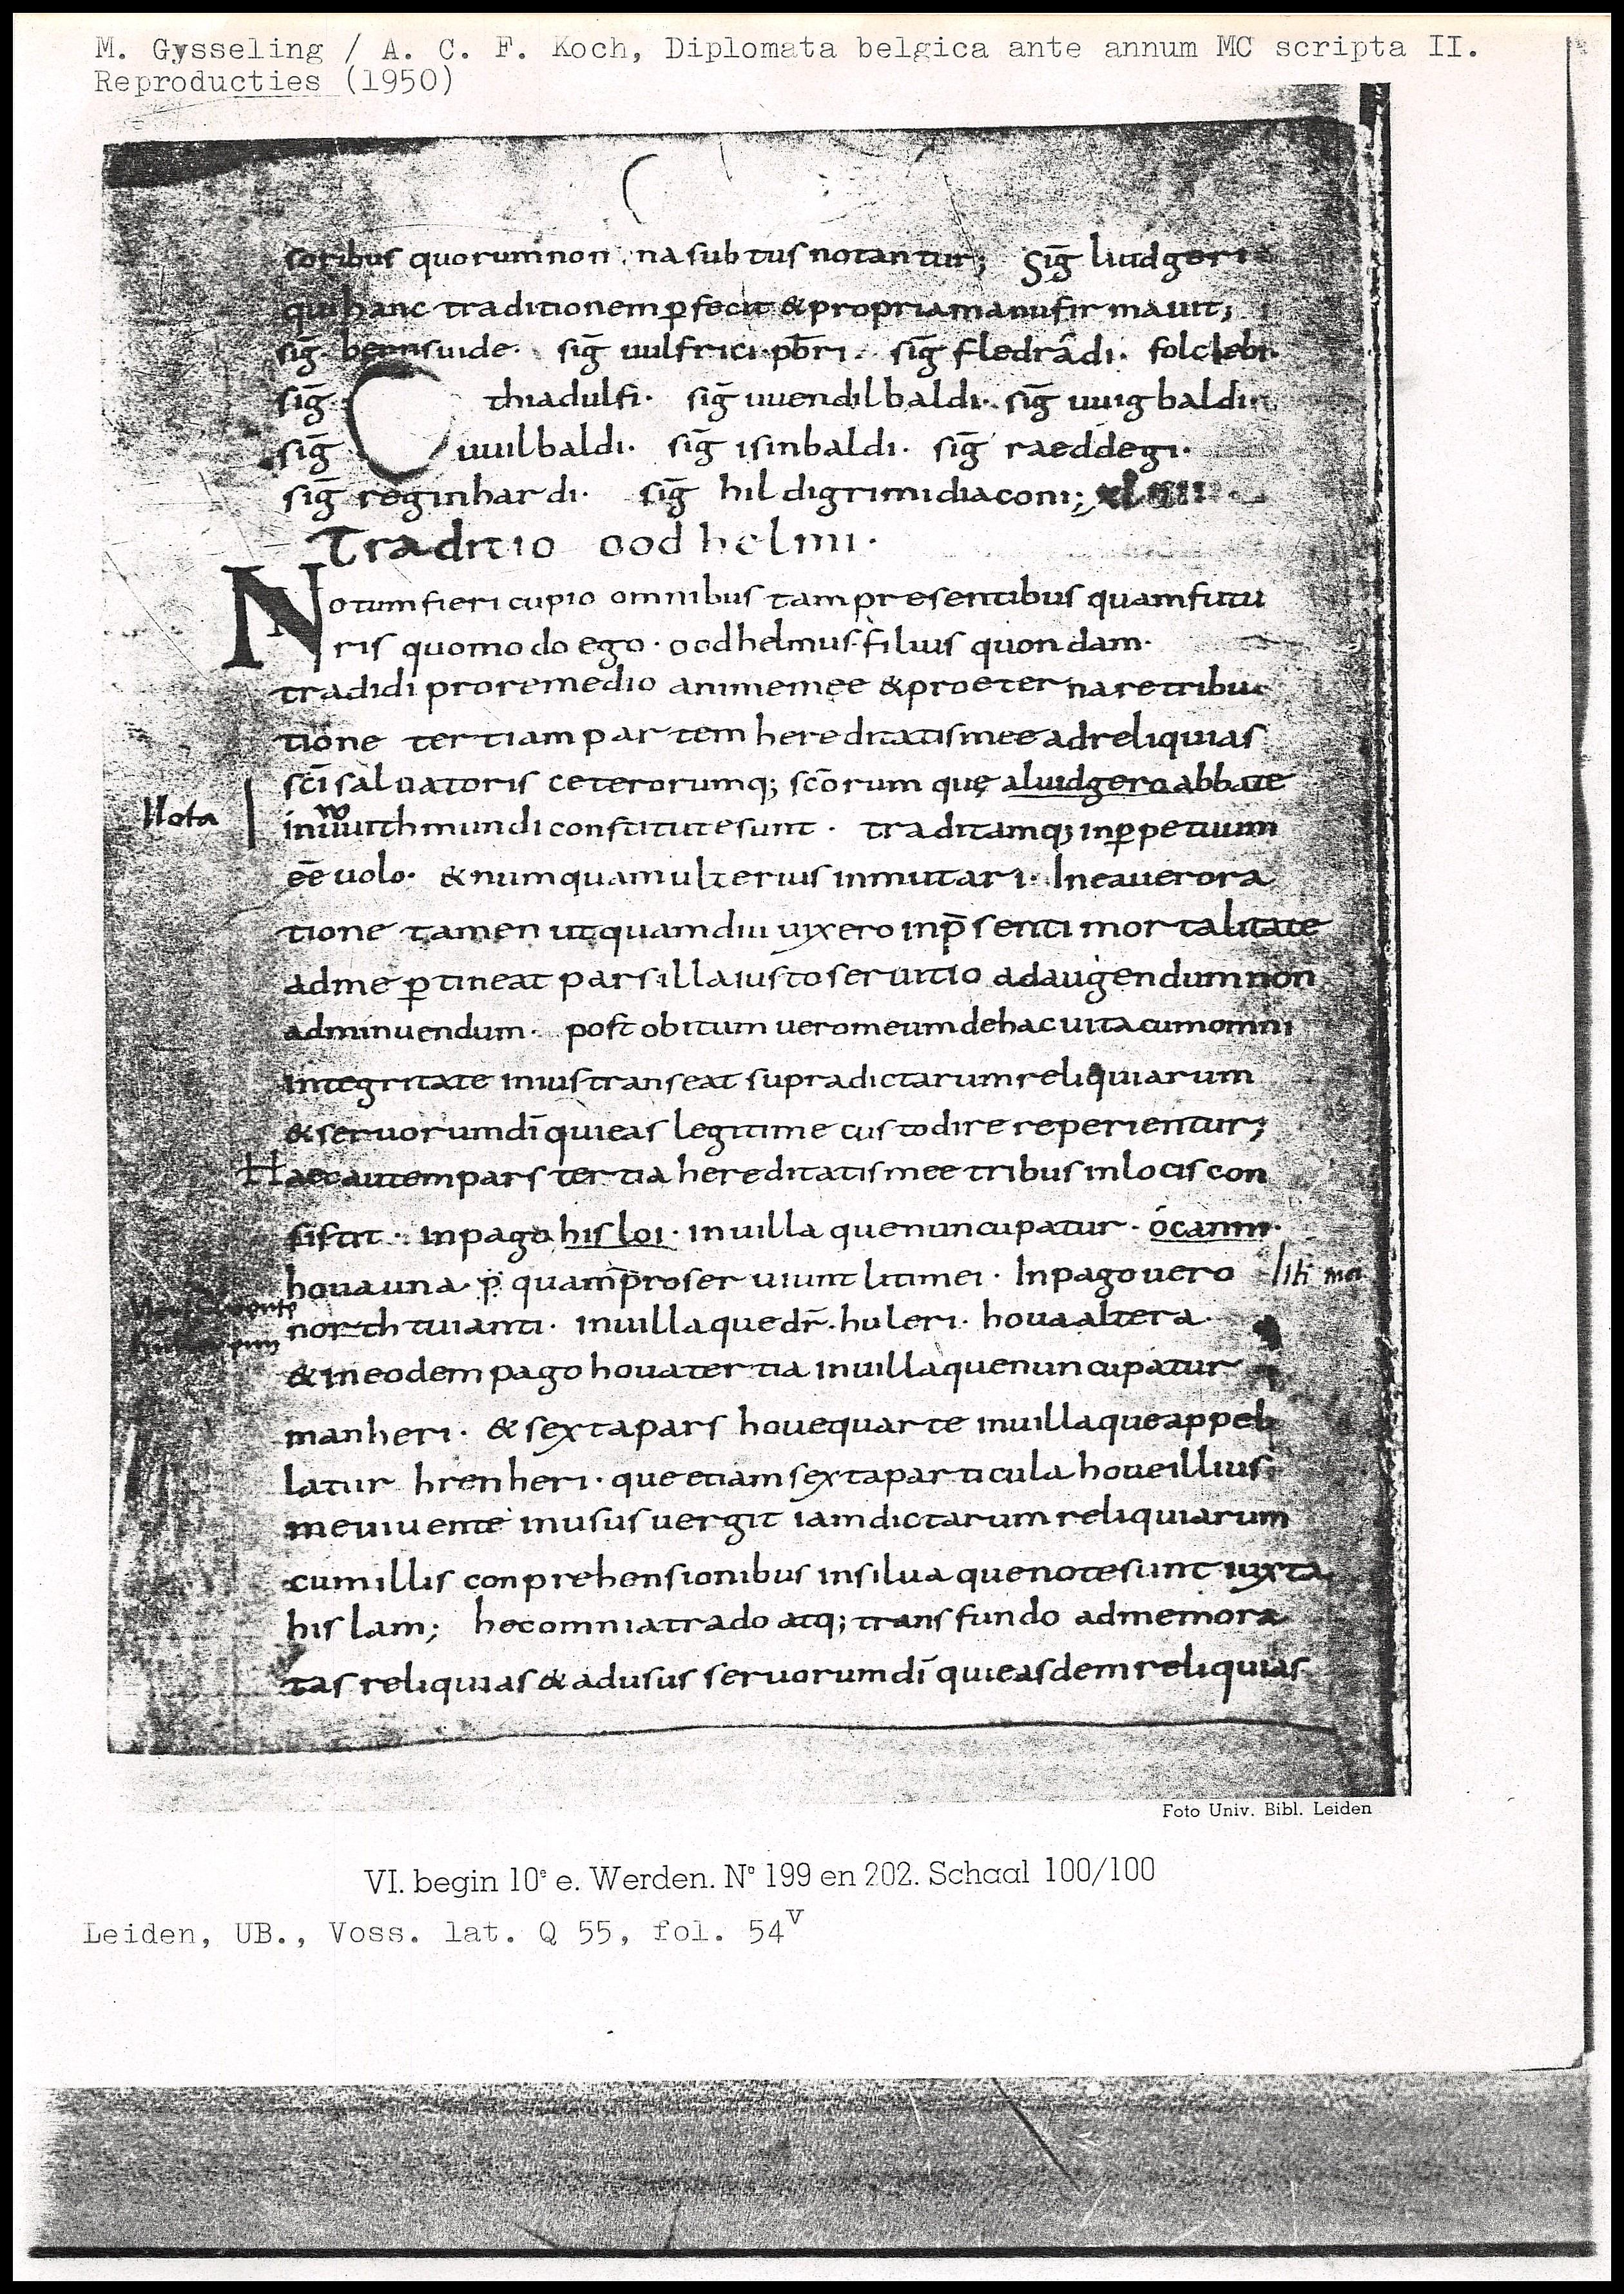 M. Gysseling / A. C. F. Koch, Diplomata belgica ante annum MC scripta II.
Reproducties (1950)
soribus quorum non na subtus notantur; Sig̅ liudgeri
qui hanc traditionem ꝑfecit & propria manu firmauit;
sig̅. bernsuide. sig̅ uulfrici pb̅ri. sig̅ fledrādi. folclebi.
sig̅ thiadulfi. sig̅ uuendilbaldi. sig̅ uuigbaldi.
sig̅ uuilbaldi. sig̅ isinbaldi. sig̅ raeddegi.
sig̅ reginhardi. sig̅ hildigrimi diaconi;
Traditio oodhelmi.
Notum fieri cupio omnibus tam presentibus quam futu
ris quomodo ego. oodhelmus. filius quondam.
tradidi pro remedio anime meę & pro eterna retribu
tione tertiam partem hereditatis mee ad reliquias
sc̅i saluatoris ceterorumq; sc̅orum quę a liudgero abbate
Nota
in uuithmundi constitute sunt. traditamq; in ꝑpetuum
ee̅ uolo. & numquam ulterius inmutari. In ea uero ra
tione tamen ut quamdiu uixero in p̅senti mortalitate
ad me ꝑtineat pars illa iusto seruitio ad augendum non
ad minuendum. post obitum uero meum de hac uita cum omni
integritate in ius transeat supradictarum reliquiarum
& seruorum di̅ qui eas legitime custodire reperientur;
Haec autem pars tertia hereditatis mee tribus in locis con
sistit. in pago hisloi. in uilla que nuncupatur. ocanni.
houa una. p̅ quam proseruiunt litimei. In pago uero
liti mei
northtuianti. in uilla que dr̅. huleri. houa altera.
& in eodem pago houa tertia in uilla que nuncupatur
manheri. & sexta pars houe quarte in uilla que appel
latur hrenheri. que etiam sexta particula houe illius
me uiuente in usus uergit iam dictarum reliquiarum
cum illis conprehensionibus in silua que note sunt iuxta
hislam; hec omnia trado atq; transfundo ad memora
tas reliquias & ad usus seruorum di̅ qui easdem reliquias
Foto Univ. Bibl. Leiden
VI. begin 10ᵉ e. Werden. Nº 199 en 202. Schaal 100/100
Leiden, UB., Voss. lat. Q 55, fol. 54ᵛ